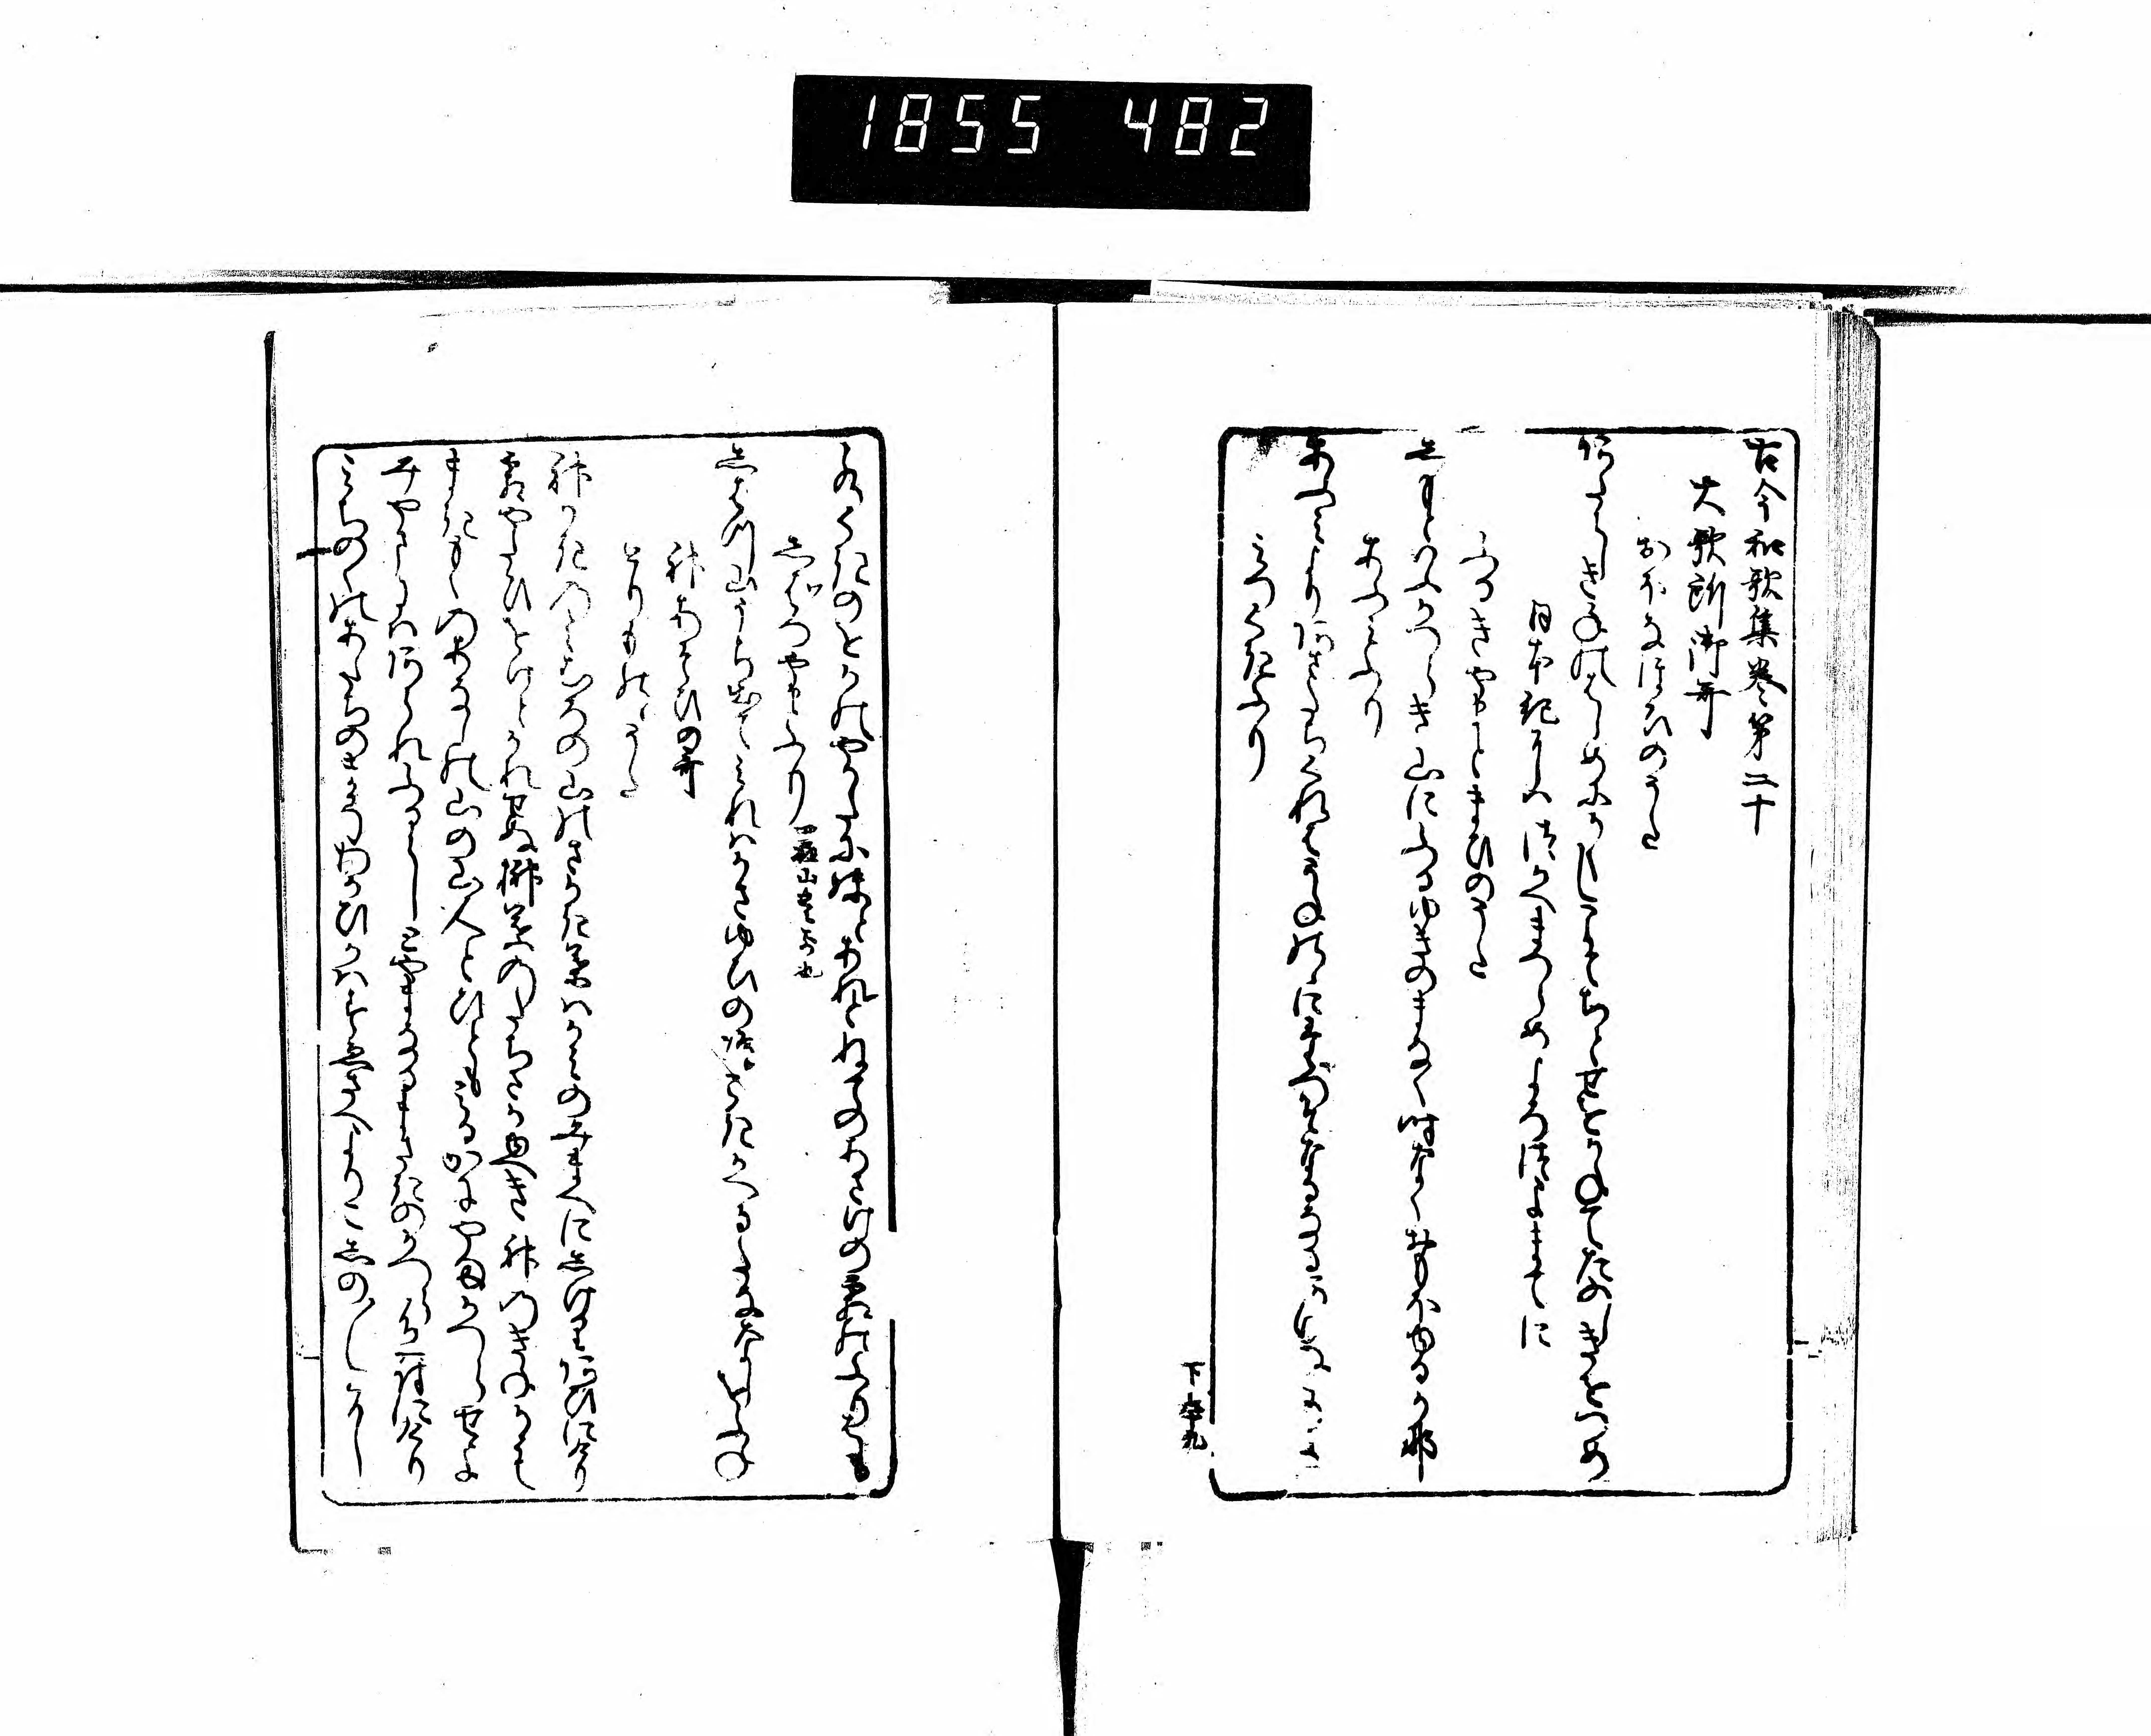 1855 482
古今和歌集巻第二十
大歌所御哥
おほなほひのうた
あたらしき年のはしめにかくしこそちとせをかねてたのしきをつめ
日本紀にはつかへまつらめよろつよまてに
ふるきやまとまひのうた
しもとゆふかつらき山にふる雪のまなく時なくおもほゆるか那
あふみふり
あふみよりあさたちくれはうねの野にたつそなくなるあけぬこのよは
みつくきふり
水くきのをかのやかたにいもとあれとねてのあさけの霜のふりはも
しはつやまふり
しはつ山うち出てみれはかさゆひの嶋こきかくるたなゝしをふね
神あそひの哥
とりものゝうた
神かきのみむろの山のさかき葉はかみのみまへにしけりあひにけり
霜やたひをけとかれせぬ榊葉のたちさかゆへき神のきねかも
まきもくのあなしの山の山人とひともみるかにやまかつらせよ
みやまにはあられふるらしとやまなるまさきのかつら色つきにけり
みちのくのあたちのまゆみわかひかはすゑさへよりこしのひ〳〵に